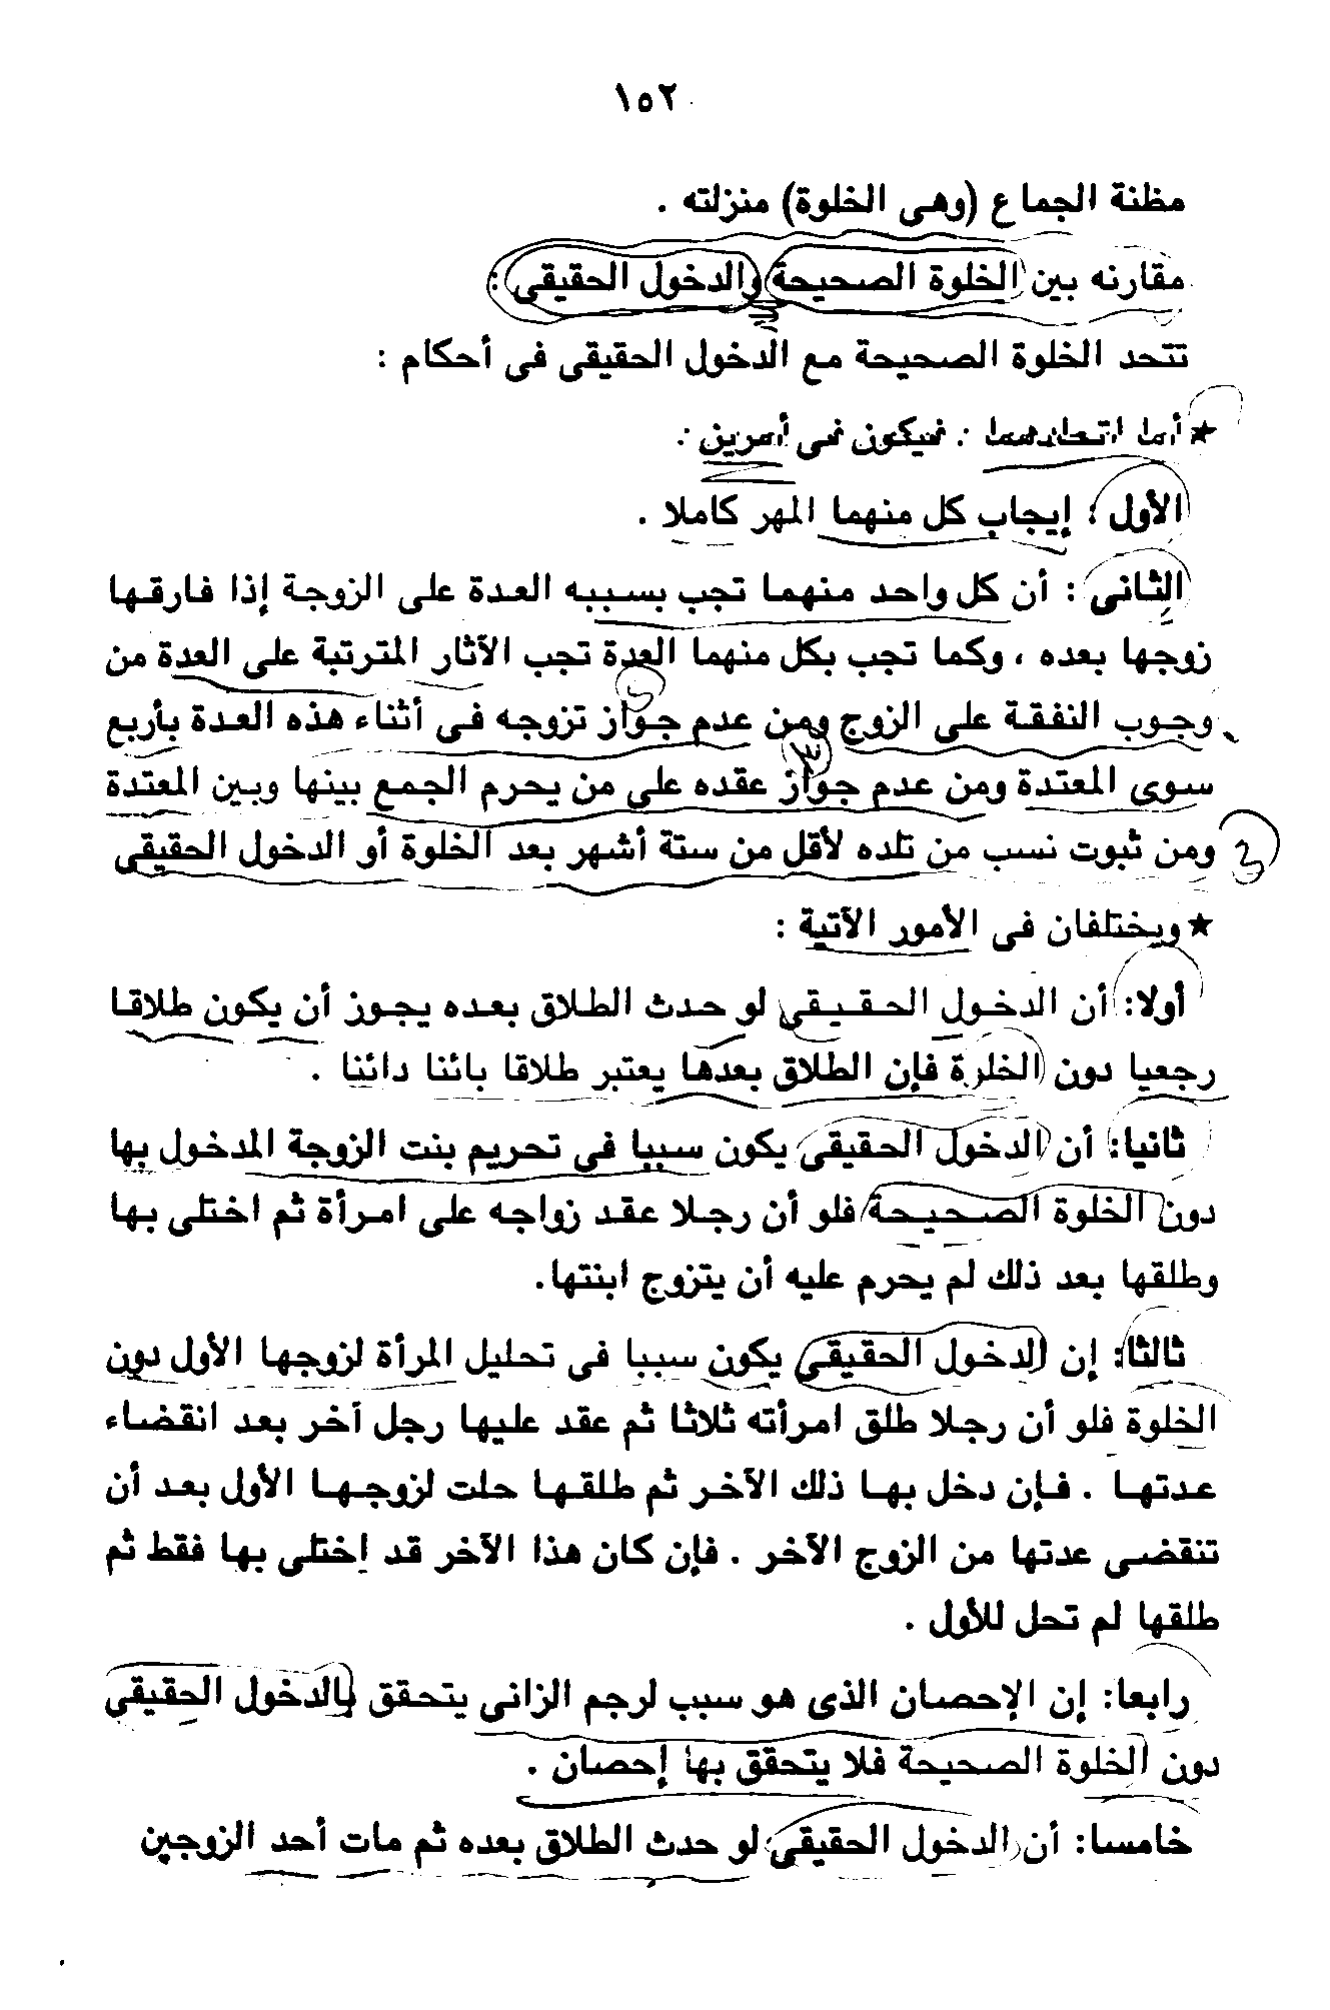 ١٥٢
مظنة الجماع (وهى الخلوة) منزلته .
مقارنه بين الخلوة الصحيحة والدخول الحقيقى :
تتحد الخلوة الصحيحة مع الدخول الحقيقى فى أحكام :
★ أما اتحادهما : فيكون فى أمرين :
الأول : إيجاب كل منهما المهر كاملا .
الثانى : أن كل واحد منهما تجب بسببه العدة على الزوجة إذا فارقها
زوجها بعده ، وكما تجب بكل منهما العدة تجب الآثار المترتبة على العدة من
وجوب النفقة على الزوج ومن عدم جواز تزوجه فى أثناء هذه العدة بأربع
سوى المعتدة ومن عدم جواز عقده على من يحرم الجمع بينها وبين المعتدة
ومن ثبوت نسب من تلده لأقل من ستة أشهر بعد الخلوة أو الدخول الحقيقى
★ ويختلفان فى الأمور الآتية :
أولا: أن الدخول الحقيقى لو حدث الطلاق بعده يجوز أن يكون طلاقا
رجعيا دون الخلوة فإن الطلاق بعدها يعتبر طلاقا بائنا دائنا .
ثانيا: أن الدخول الحقيقى يكون سببا فى تحريم بنت الزوجة المدخول بها
دون الخلوة الصحيحة فلو أن رجلا عقد زواجه على امرأة ثم اختلى بها
وطلقها بعد ذلك لم يحرم عليه أن يتزوج ابنتها.
ثالثا: إن الدخول الحقيقى يكون سببا فى تحليل المرأة لزوجها الأول دون
الخلوة فلو أن رجلا طلق امرأته ثلاثا ثم عقد عليها رجل آخر بعد انقضاء
عدتها . فإن دخل بها ذلك الآخر ثم طلقها حلت لزوجها الأول بعد أن
تنقضى عدتها من الزوج الآخر . فإن كان هذا الآخر قد إختلى بها فقط ثم
طلقها لم تحل للأول .
رابعا: إن الإحصان الذى هو سبب لرجم الزانى يتحقق بالدخول الحقيقى
دون الخلوة الصحيحة فلا يتحقق بها إحصان .
خامسا: أن الدخول الحقيقى لو حدث الطلاق بعده ثم مات أحد الزوجين